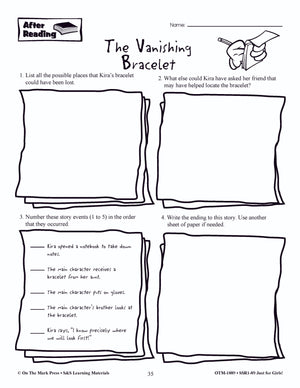 After
Reading
Name:
The Vanishing
Bracelet
1. List all the possible places that Kira's bracelet
could have been lost.
2. What else could Kira have asked her friend that
may have helped locate the bracelet?
3. Number these story events (1 to 5) in the order
that they occurred.
Kira opened a notebook to take down
notes.
The main character receives a
bracelet from her aunt.
The main character puts on gloves.
The main character's brother looks at
the bracelet.
Kira says, "I know precisely where
we will look first!"
4. Write the ending to this story. Use another
sheet of paper if needed.
© On The Mark Press • S&S Learning Materials
35
OTM-1889 • SSR1-89 Just for Girls!